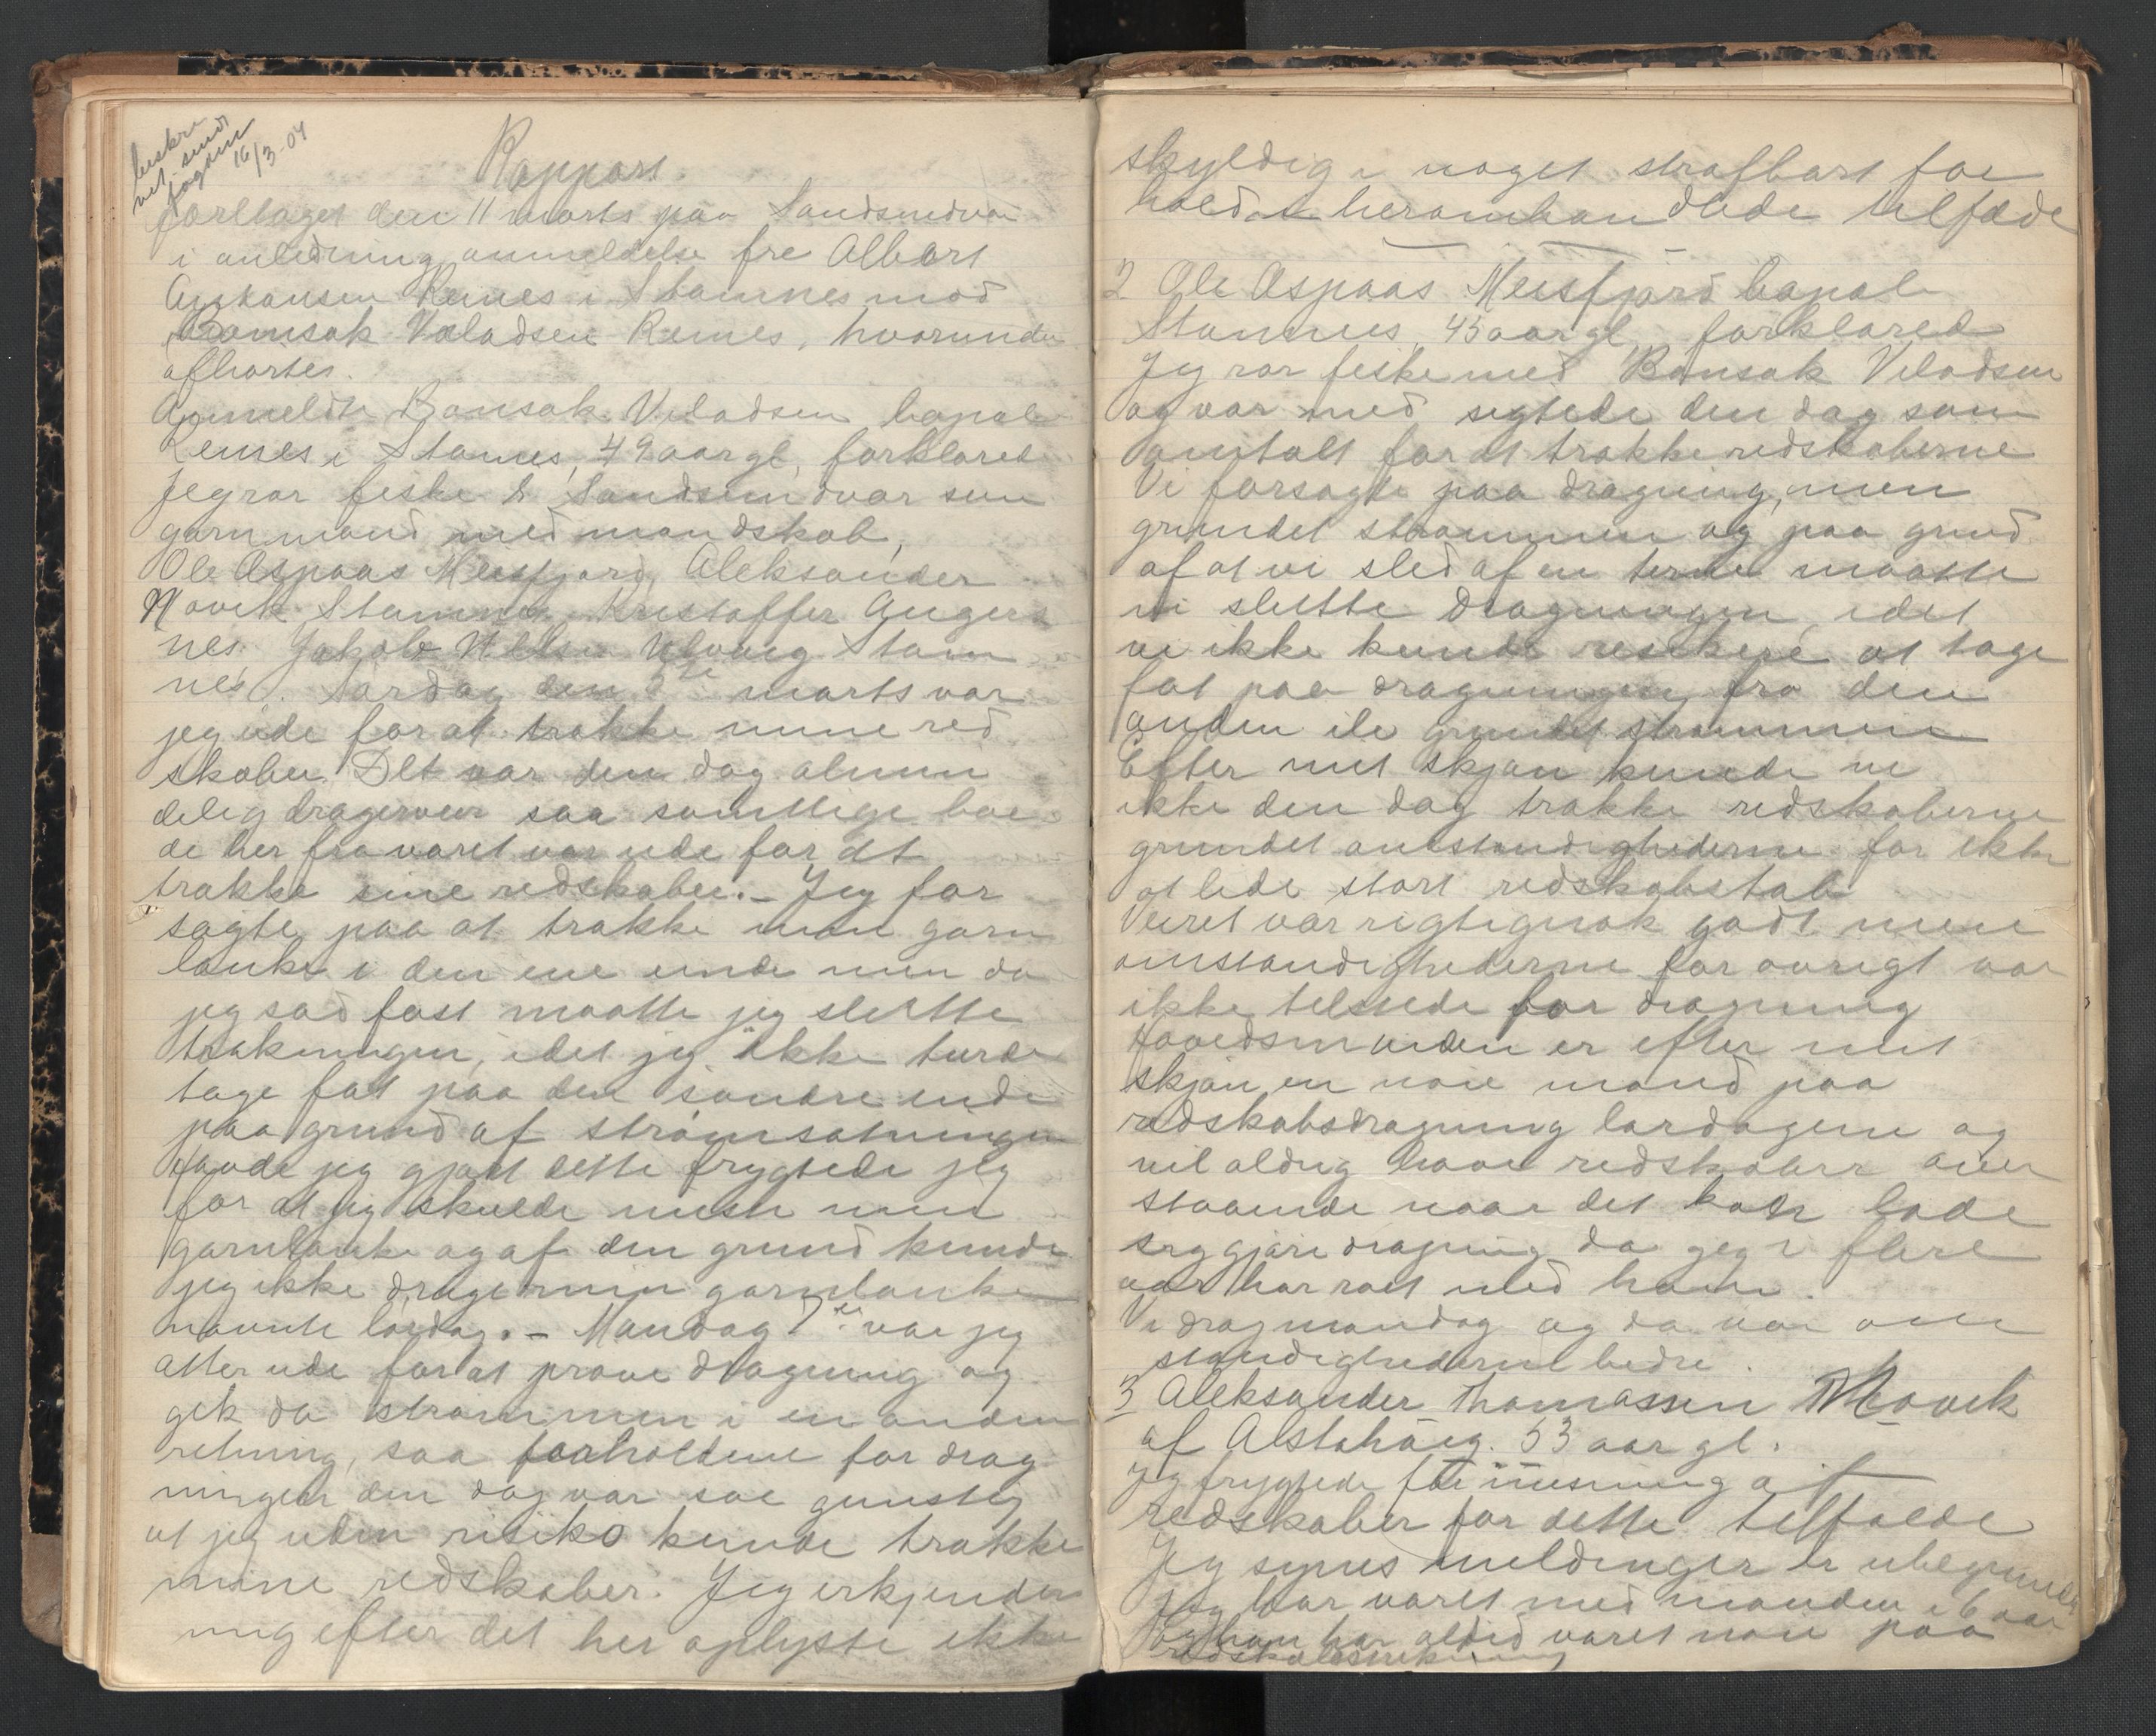 beskre
vet sendt
fogden
16/3-04
Rapport
foretaget den 11 marts paa Sandsundvær
i anledning anmeldelse fra Albert
Remes i Stamnes mod
Bonsak Veladsen Remes, hvorunder
afhørtes.
Anmeldte Bonsak Veladsen bopæl
Remes i Stamnes, 49 aar gl, forklared
Jeg ror fiske i Sandsundvær som
garnmand med mandskab,
Ole Aspaas Meisfjord, Aleksander
Novik Stamnes, Kristoffer Angers
nes, Jakob Nilsen Ulvang Stam
nes. Lørdag den 5te marts var
jeg ude for at trække mine red
skaber. Det var den dag almin
delig drageveir saa samtlige baa
de her fra været var ude for at
trække sine redskaber. - Jeg for
søgte paa at trække min garn
lænke i den ene ende men da
jeg sad fast maatte jeg slutte
trækningen, idet jeg ikke turde
tage fat paa den søndre ende
paa grund af strømsætningen
Havde jeg gjort dette frygtede jeg
for at jeg skulde miste min
garnlænke og af den grund kunde
jeg ikke drage min garnlænke
nævnte lørdag. - Mandag 7de var jeg
atter ude for at prøve dragning og
gik da strømmen i en anden
retning, saa forholdene for drag
ningen den dag var saa gunstig
at jeg uden risiko kunde trække
mine redskaber. Jeg erkjender
mig efter det her oplyste ikke
skyldig i noget strafbart for
hold i heromhandlede tilfælde
2 Ole Aspaas Meisfjord bopæl
Stamnes, 45 aar gl, forklared
Jeg ror fiske med Bonsak Veladsen
og var med sigtede den dag som
omtalt for at trække redskaberne
Vi forsøgte paa dragning, men
grundet strømmen og paa grund
af at vi sled af en terne maatte
vi slutte dragningen, idet
vi ikke kunde reskere at tage
fat paa dragningen fra den
anden ile grundet strømmen
Efter mit skjøn kunde vi
ikke den dag trække redskaberne
grundet omstændighederne for ikke
at lide stort redskabstab
Veiret var rigtignok godt men
omstændighederne for øvrigt var
ikke tilstede for dragning
Høvedsmanden er efter mit
skjøn en nøie mand paa
redskabsdragning lørdagene og
vil aldrig have redskaber over
staaende naar det kan lade
sig gjøre dragning da jeg i flere
aar har roet med ham.
Vi drog mandag og da var om
stændighederne bedre.
3 Aleksander Thomassen Novik
af Alstahaug. 53 aar gl.
Jeg frygtede for misning af
redskaber for dette tilfælde
Jeg synes meldinger er ubegrundet
Jeg har været med manden i 6 aar
og han har altid været nøie paa
redskabstrækning